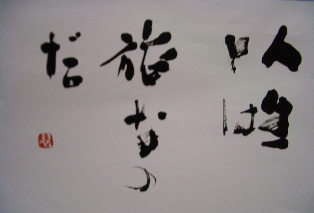 人生
は
旅なの
だ